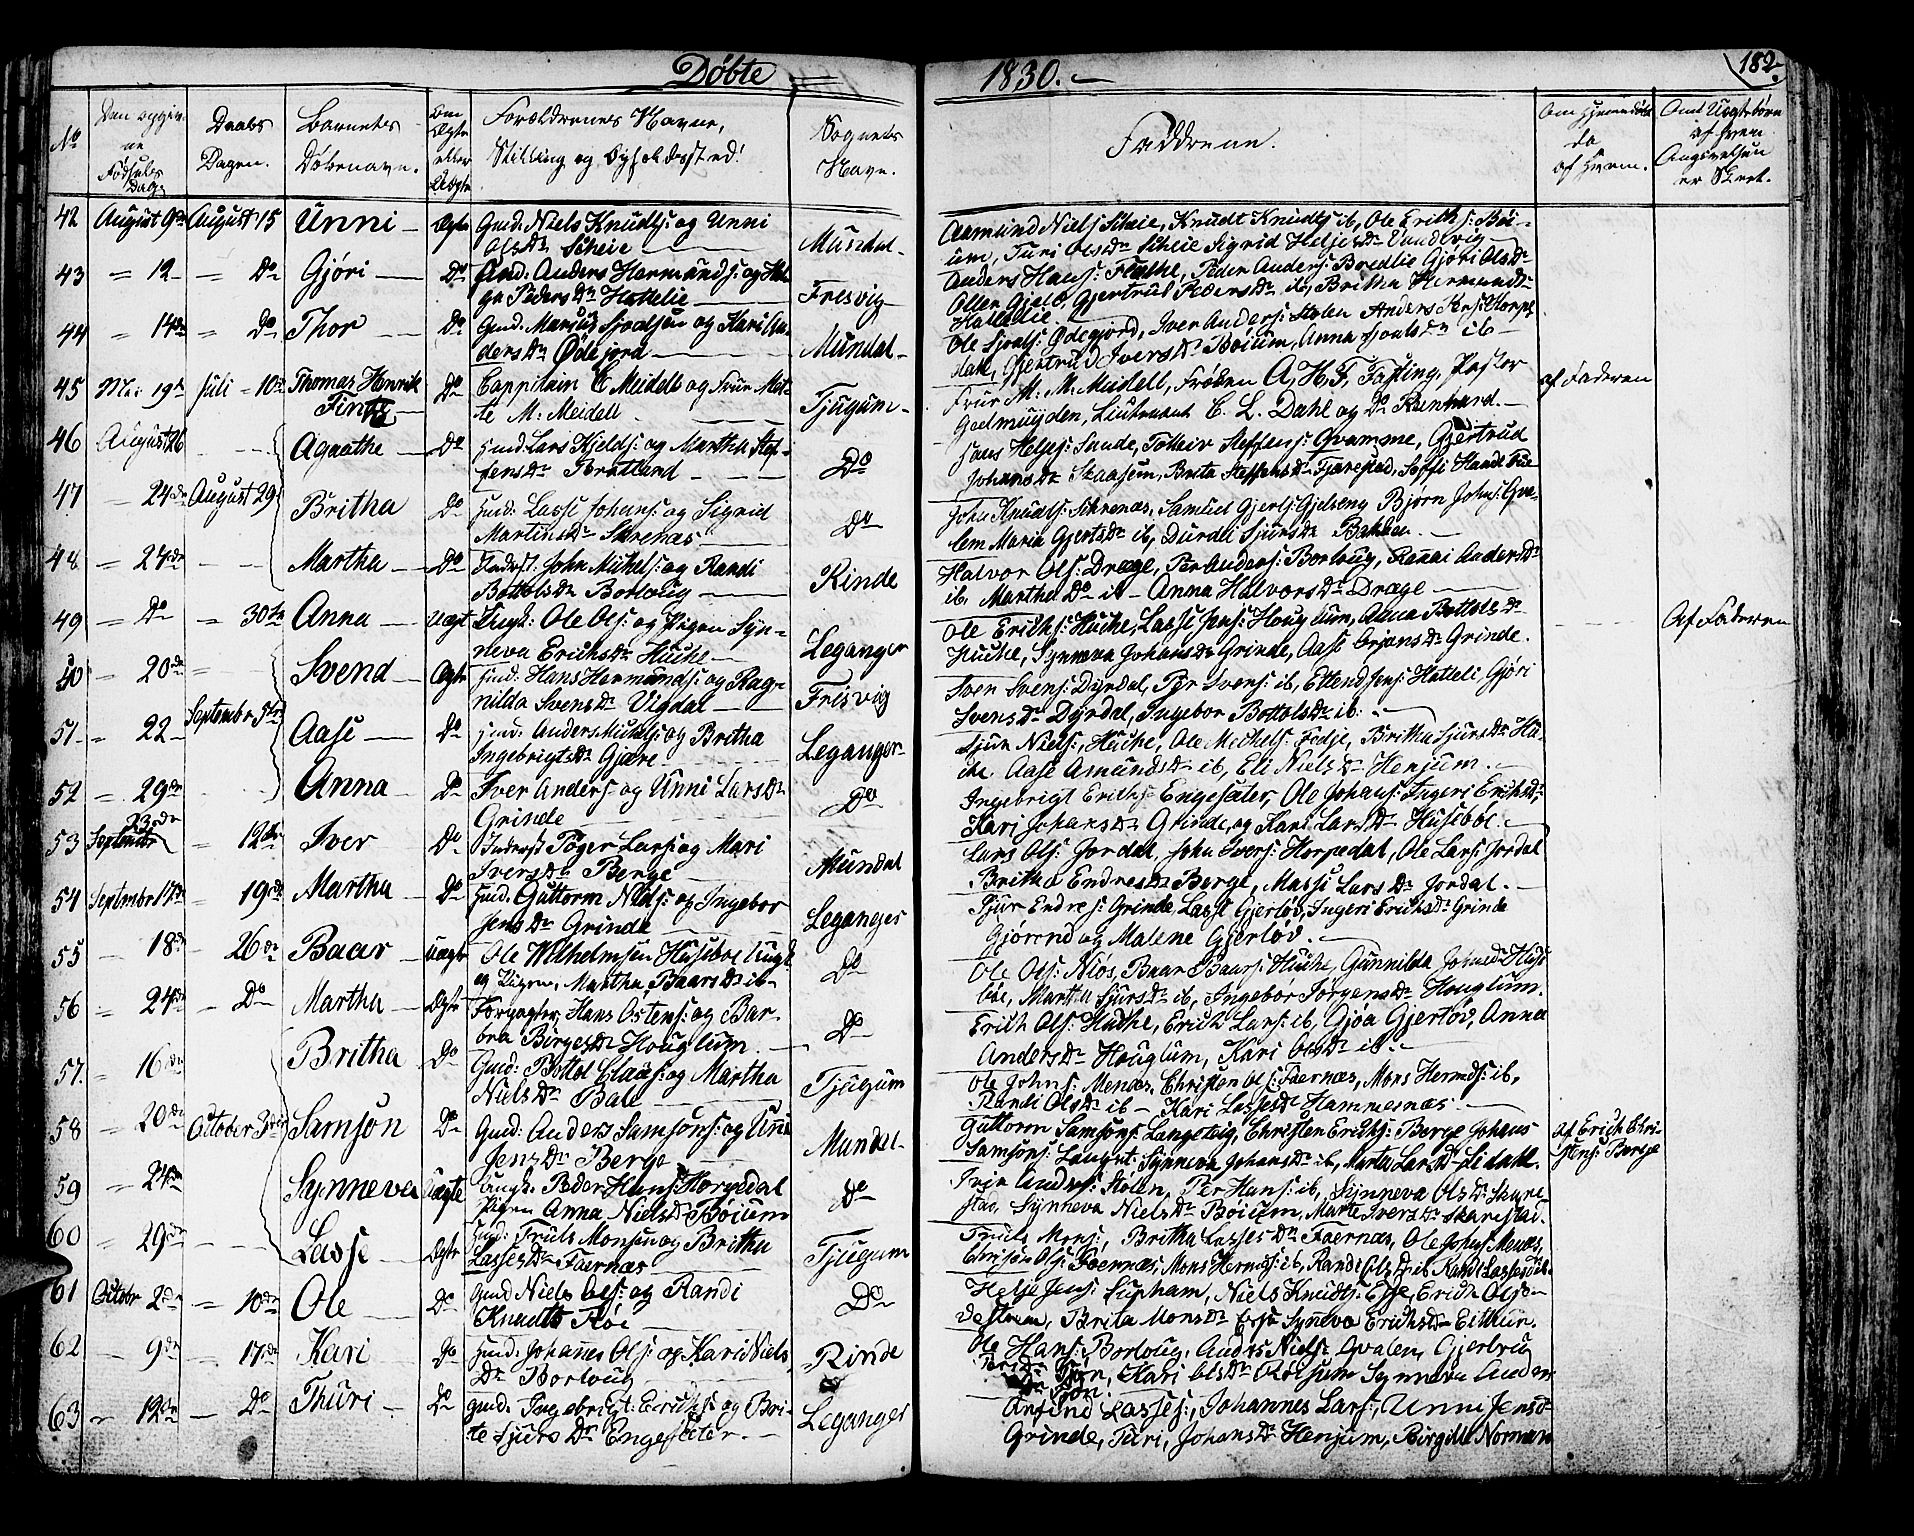 Døbte 1830. 182.
No Den opgivne Fødsels Dag. Daabs Dagen. Barnets Døbenavn. Om Ægte eller Uægte Forældrenes Navne, Stilling og Opholdssted. Sognets Navn. Fadderne. Om Hjemmedøbt da af Hvem. Om Uægtebørn af hvem Angivelsen er Skeet.
42 August 9de August 15 Unni Ægte Gmd: Niels Knuds: og Unni
Olsdr Scheie Mundal
Aamund Niels: Scheie, Knudt Knuds: ib, Ole Erichs: Bøi-
um, Turi Olsdr Scheie Sigrid Heljesdr
43 " 12 " Do Gjøri Do Gmd: Anders Hermunds: og Hel-
ga Pedersdr Hattelie Fresvig
Anders Hans: Flathe, Peder Anders: Bredlie Gjøri Olsdr
Gjertrud Pedersdr ib, Britha Hermundsdr
Hattelie
44 " 14de " Do Thor Do Gmd: Marcus Sivatsen og Kari An-
dersdr Ødejord Mundal
Ole Ødegjord, Iver Anders: Stølen Anders Jens: Horpe-
dal, Gjertrud Iversdr Bøium, Anna ib
45 Mai 19de Juli 10de Thomas Henrik
Do Cappitain C. Meidell og Frue Met-
te M. Meidell Tjugum
Frue M. M. Meidell, Frøken A. H. F. Fasting, Pastor
Lieutenant C. L. Dahl og Do
af Faderen
46 August 26 Agaathe Do Gmd: Lars Kjelds: og Martha Stef-
fensdr Bratland Do
Hans Helje: Sunde, Tolleiv Steffens: Qvamme, Gjertrud
Johansdr Skaasem, Brita Steffensdr Fjærestad, Soffi
47 " 24de August 29 Britha Do Gmd: Lasse Johans: og Sigrid
Martinsdr Skrenæs Do
John Knuds: Skrenæs, Samuel Gjerts: Gjelseng Bjørn Johs: Qva-
lem Maria Gjertsdr ib, Durdei Sjursdr Bahken
48 " 24de Martha Do Inderst: John Mikels: og Randi
Bottolsdr Borloug Rinde
Halvor Ols: Dræge, Per Anders: Borloug, Rannei Andersdr
ib. Martha Do ib - Anna Halvorsdr Dræge
49 " Do " 30te Anna Uægt Ungk: Ole Ols: og Pigen Syn-
neva Erichsdr Huche Leganger
Ole Erichs: Huche, Lasse Jens: Houglum, Anna Bottolsdr
Huche, Synneva Johansdr Grinde, Aase Orjansdr Grinde.
Af Faderen
50 " 20de Svend Ægte Gmd: Hans Hermunds: og Rag-
nilda Svensdr Vigdal Frisvig
Sven Svens: Dyrdal, Per Svens: ib, Ellend Jens: Hatteli, Gjøri
Svensdr Dyrdal, Ingebor Bottolsdr ib
51 " 22 Septembr 5te Aase Do Gmd: Anders Mikels: og Britha
Ingebrigtsdr Gjære Leganger
Sjur Niels: Huche, Ole Mechels: Fedje, Britha Sjursdr Hu-
che. Aase Amundsdr ib, Eli Nielsdr Henjum.
52 " 29de Anna Do Iver Anders: og Unni Larsdr
Grinde Do
Ingebrigt Erichs: Engesæter, Ole Johans: Ingeri Erichsdr
Kari Johansdr Grinde, og Kari Larsdr Husebøe.
53 Septembr " 12te Iver Do Inderst Roger Lars: og Mari
Iversdr Berge Mundal
Lars Ols: Jordal, John Ivers: Horpedal, Ole Lars: Jordal
Britha Endresdr Berge, Massi Larsdr Jordal.
54 Septembr 17de " 19de Martha Do Gmd: Guttorm Niels: og Ingebor
Jensdr Grinde Leganger
Sjur Endres: Grinde, Lasse Gjerløv, Ingeri Erichsdr Grinde
Gjørend og Malene Gjerløv.
55 18de 26de Baar Uægte Ole Wilhelmsen Husebøe Ungk:
og Pigen, Martha Baarsdr ib Do
Ole Ols: Niøs, Baar Baars: Huche, Gunnilda Huse-
bøe, Martha Sjursdr ib, Ingebor Torgersdr Houglum.
56 24de Do Martha Ægte Forpagter Hans Ostens: og Bar-
bra Børgesdr Houglum Do
Erich Ols: Huche, Erich Lars: ib, Gjøa Gjerløv, Anna
Andersdr Houglum, Kari Olsdr ib
57. " 16de Britha Do Gmd: Bottol Claus: og Martha
Nielsdr Bale Tjugum
Ole Johns: Menæs, Christen Ols: Faernæs, Mons Hermds: ib,
Randi Olsdr ib - Kari Lassesdr Hammersnæs
58 " 20de October 3die Samson Do Gmd: Anders Samsons: og Uni
Jensdr Berge Mundal
Guttorm Samsons: Langeteig, Christen Erichs: Berge Johans
Samsons: Langet: Synneva Johansdr ib, Marta Larsdr Lidahl.
Af Erich Chri-
stens: Berge
59 " 24de Synneva Uægte Ungk: Peder Hans: Horpedal
Pigen Anna Nielsdr Bøium Do
Iver Anders: Stølen, Per Hans: ib, Synneva Olsdr Skare-
stad, Synneva Nielsdr Bøium, Marte Iversdr Skarestad.
60 " 29de Lasse Ægte Gmd: Truls Monsen og Britha
Lassesdr Faernæs Tjugum
Truls Mons:, Britha Lassesdr Faernæs, Ole Johns: Menæs,
Christen Ols: Faernæs, Mons Hermds: ib, Randi Olsdr ib Randi Lassesdr ib
61 Octobr 2de " 10de Ole Do Gmd Niels Ols: og Randi
Knudts Røi Do
Helje Jens: Supham, Niels Knudts: Esse, Erich Ols:
Brita Monsdr Synneva Erichsdr Eithun.
62 9de 17de Kari Do Gmd: Johannes Ols: og Kari Niels-
Dr Borloug Rinde
Ole Hans: Borloug, Anders Niels: Qvalen, Gjertrug
Kari Olsdr Røisum Synneva Anders
63 " 12te Do Thuri Do Gmd: Ingebrigt: Erichs: og Bri-
te Sjursdr Engesæter. Leganger
Anfind Lasses:, Johannes Lars:, Unni Jensdr
Grinde, Turi, Johansdr Henjum, Birgitte Norman